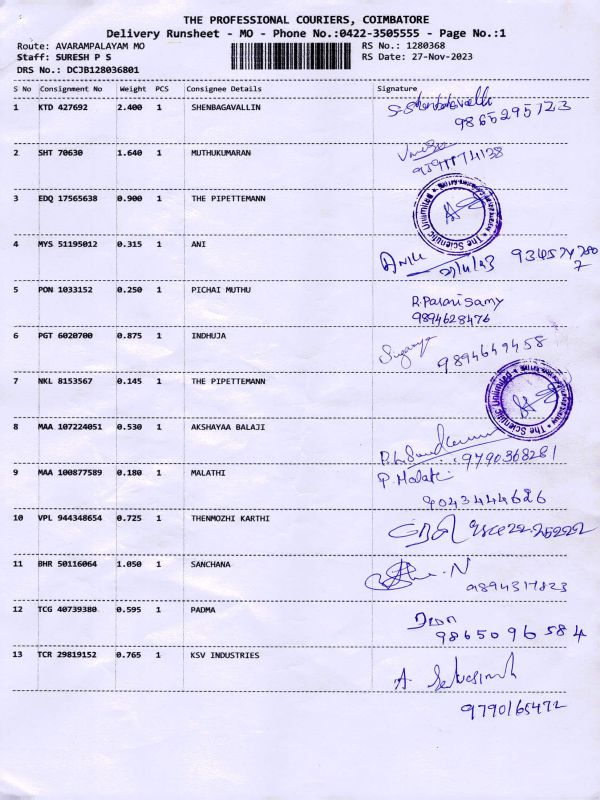 THE PROFESSIONAL COURIERS, COIMBATORE
Delivery Runsheet - MO - Phone No.:0422-3505555 - Page No.:1
Route: AVARAMPALAYAM MO RS No.: 1280368
Staff: SURESH P S RS Date: 27-Nov-2023
DRS No.: DCJB128036801
S No Consignment No Weight PCS Consignee Details Signature
1 KTD 427692 2.400 1 SHENBAGAVALLIN S. Shenbagavalli
9865295123
2 SHT 70630 1.640 1 MUTHUKUMARAN
3 EDQ 17565638 0.900 1 THE PIPETTEMANN
The Scientific Unlimited
4 MYS 51195012 0.315 1 ANI
5 PON 1033152 0.250 1 PICHAI MUTHU R. Palanisamy
9894628476
6 PGT 6020700 0.875 1 INDHUJA Suganya
9894649458
7 NKL 8153567 0.145 1 THE PIPETTEMANN
The Scientific Unlimited
8 MAA 107224051 0.530 1 AKSHAYAA BALAJI
9790368281
9 MAA 100877589 0.180 1 MALATHI P. Malati
9043444626
10 VPL 944348654 0.725 1 THENMOZHI KARTHI
11 BHR 50116064 1.050 1 SANCHANA
12 TCG 40739380 0.595 1 PADMA
9865096584
13 TCR 29819152 0.765 1 KSV INDUSTRIES
9790165472